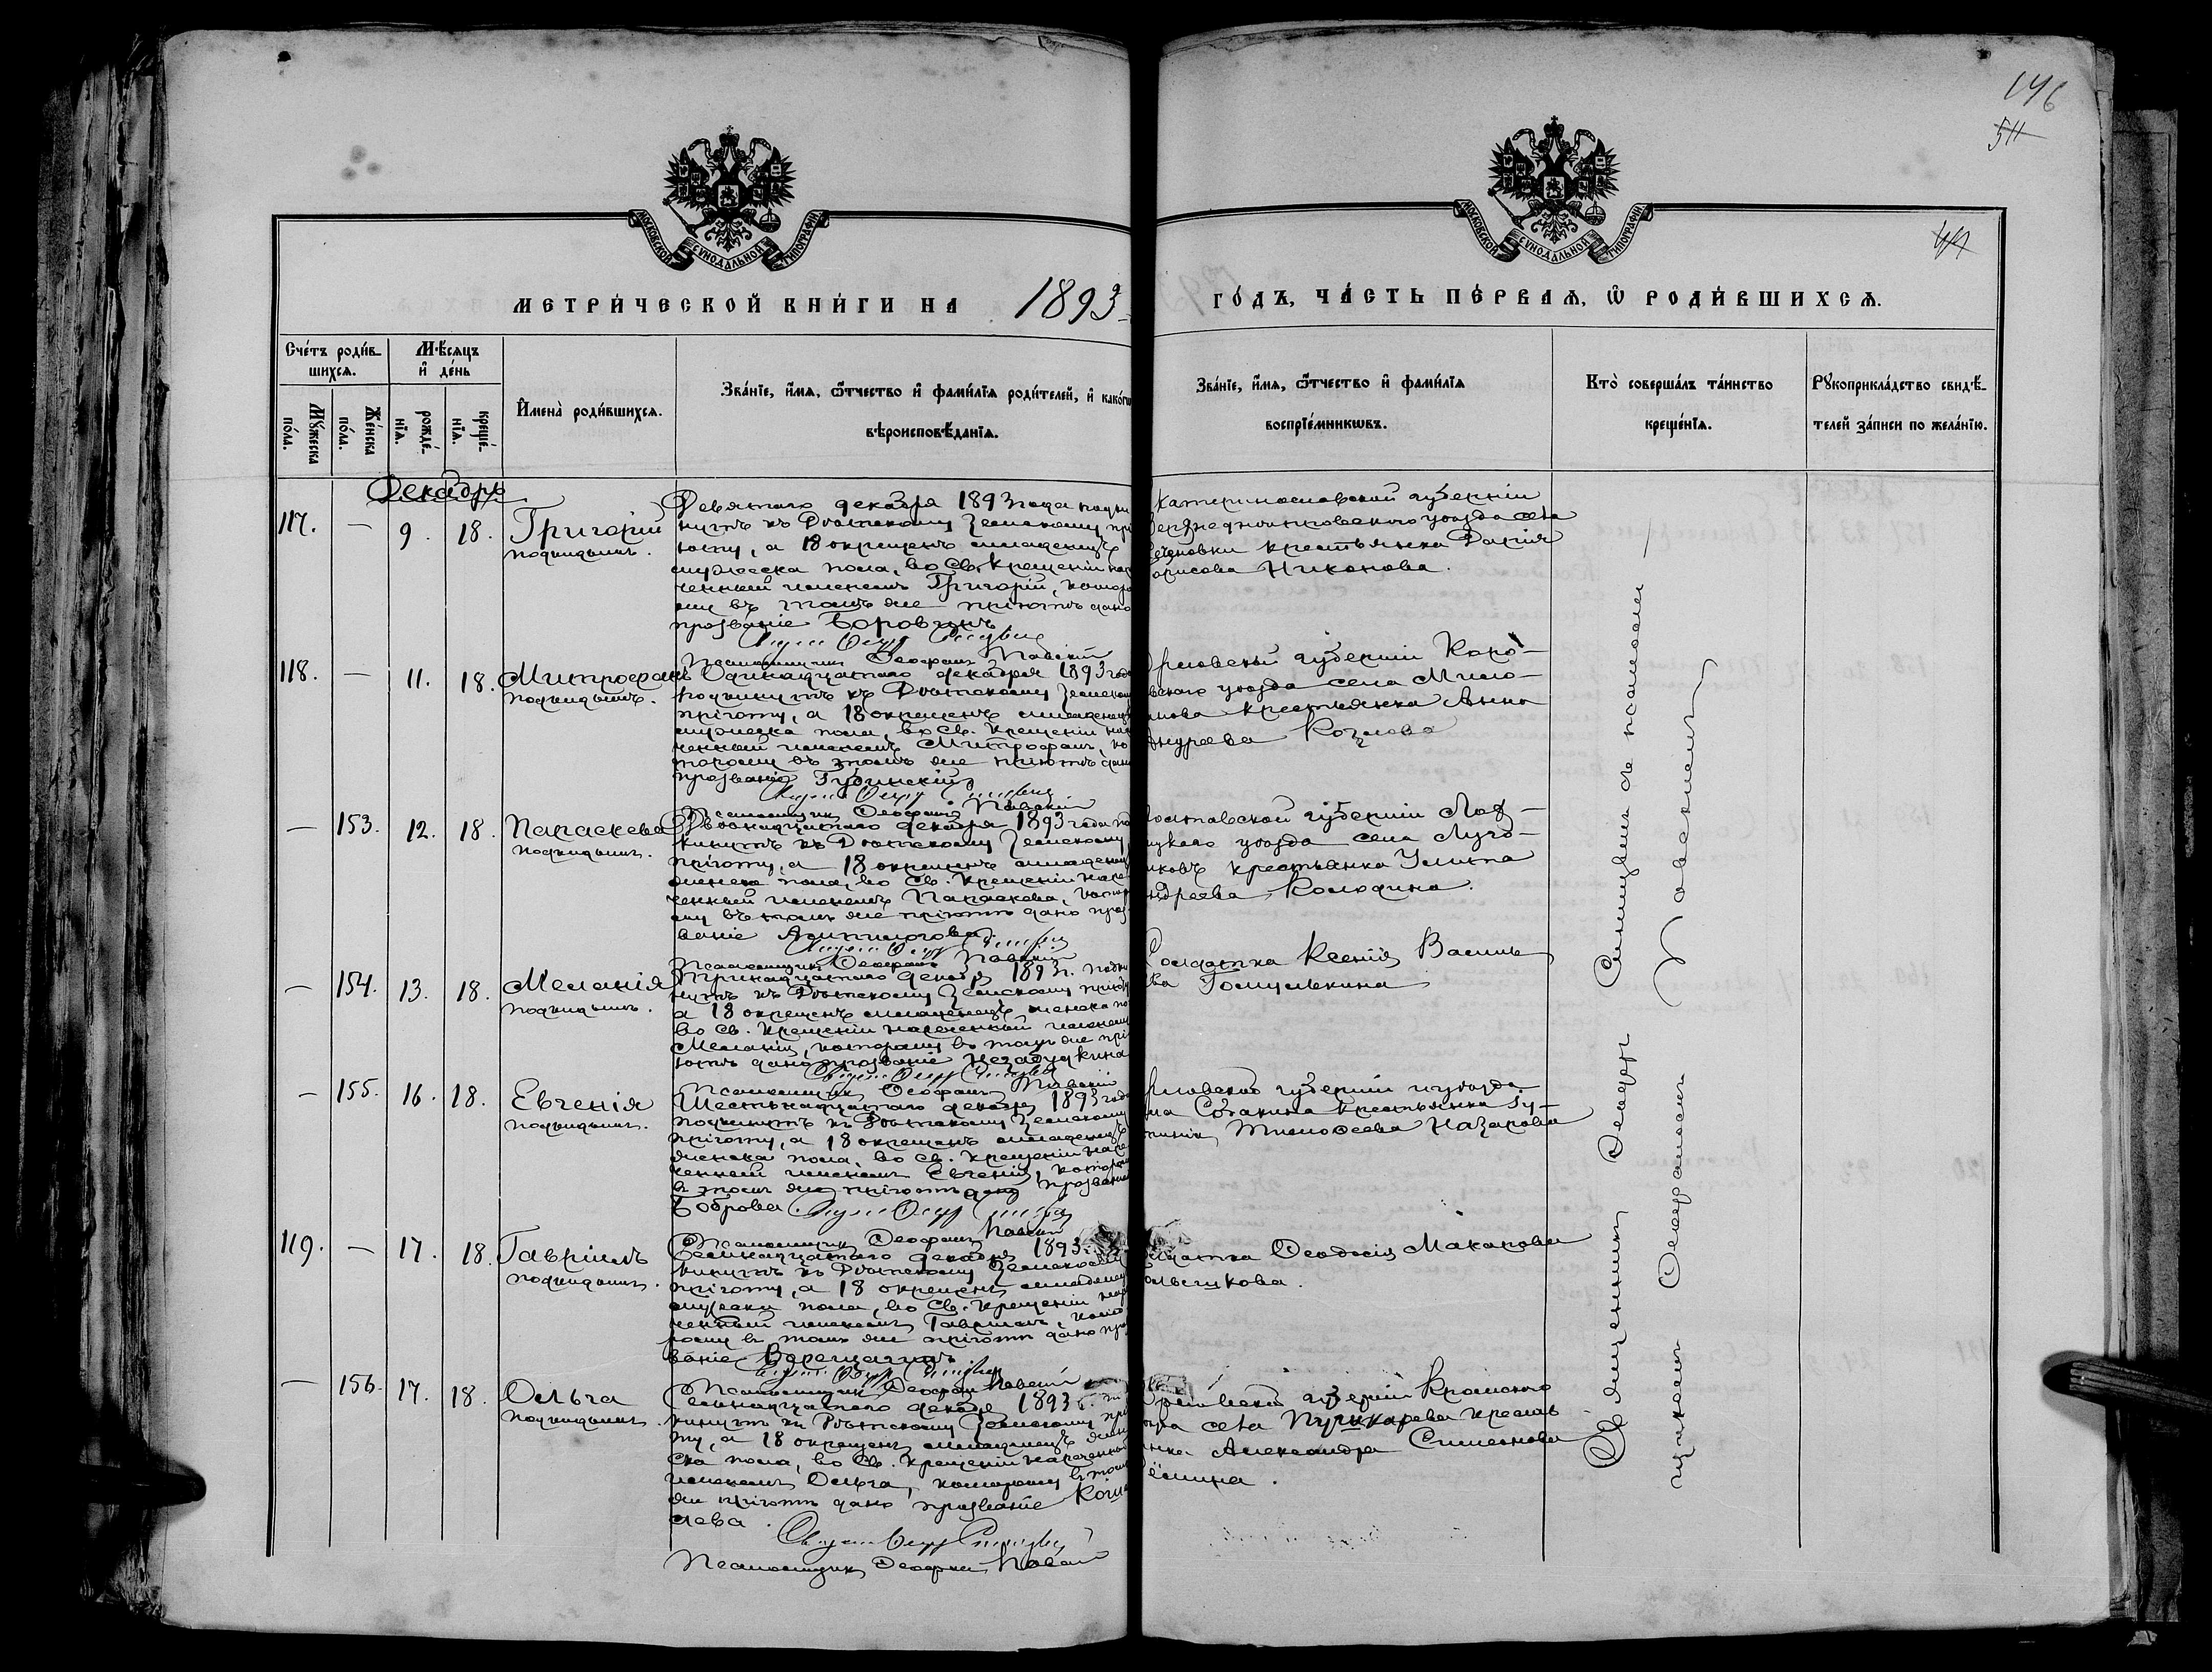 146
511
МОСКОВСКОЙ СѴНОДАЛЬНОЙ ТИПОГРАФІИ
МОСКОВСКОЙ СѴНОДАЛЬНОЙ ТИПОГРАФІИ
МЕТРИ́ЧЕСКОЙ КНИ́ГИ НА 1893
ГО́ДЪ, ЧА́СТЬ ПЕ́РВАЯ, Ѡ҆ РОДИ́ВШИХСЯ.
Сче́тъ роди́в-
шихся.
Му́жеска
по́ла.
Же́нска
по́ла.
Мѣ́сяцъ
и҆ де́нь
рожде́-
нія.
креще́-
нія.
И҆мена̀ роди́вшихся.
Зва́ніе, и҆́мя, ѻ҆́тчество и҆ фами́лія роди́телей, и҆ како́гѡ
вѣроисповѣ́данія.
Зва́ніе, и҆́мя, ѻ҆́тчество и҆ фами́лія
воспріе́мникѡвъ.
Кто̀ соверша́лъ та́инство
креще́нія.
Рꙋкоприкла́дство свидѣ́-
телей за́писи по жела́нію.
Декабрь
117. — 9. 18. Григорій
подкидышъ.
Девятаго декабря 1893 года подки
нутъ къ Дѣтскому Земскому прі
юту, а 18 окрещенъ младенецъ
мужеска пола, во Св. Крещеніи на
ченный именемъ Григорій, которо
му въ томъ же пріютѣ дано
прозваніе Боровчукъ
Псаломщикъ Ѳеофанъ Павскій
катеринославской губерніи
Верхнеднѣпровскаго уѣзда села
крестьянка Дарія
орисова Никонова.
118. — 11. 18. Митрофанъ
подкидышъ.
Одинадцатаго декабря 1893 года
подкинутъ къ Дѣтскому Земскому
пріюту, а 18 окрещенъ младенецъ
мужеска пола, во Св. Крещеніи на
ченный именемъ Митрофанъ, ко
торому въ томъ же пріютѣ дано
прозваніе Губинскій
Псаломщикъ Ѳеофанъ Павскій
рловской губерніи Каро-
вскаго уѣзда села Мило-
нова крестьянка Анна
Андреева Козлова
— 153. 12. 18. Параскева
подкидышъ.
Двѣнадцатаго декабря 1893 года по
кинутъ къ Дѣтскому Земскому
пріюту, а 18 окрещенъ младенецъ
женска пола, во Св. Крещеніи наре
ченный именемъ Параскева, котор
ому въ томъ же пріютѣ дано проз
ваніе
Псаломщикъ Ѳеофанъ Павскій
олтавской губерніи Лох-
ицкаго уѣзда села Луго-
иковъ крестьянка Улита
ндреева Колодина.
— 154. 13. 18. Меланія
подкидышъ.
Тринадцатаго декабря 1893 г. подки
нутъ къ Дѣтскому Земскому пріюту
а 18 окрещенъ младенецъ женска по
во Св. Крещеніи нареченный именемъ
Меланія, которому въ томъ же прі
ютѣ дано прозваніе Незабудкина
Псаломщикъ Ѳеофанъ Павскій
Солдатка Ксенія Василь
ева Гомулькина
— 155. 16. 18. Евгенія
подкидышъ.
Шестнадцатаго декабря 1893 года
подкинутъ къ Дѣтскому Земскому
пріюту, а 18 окрещенъ младенецъ
женска пола, во Св. Крещеніи наре
ченный именемъ Евгенія, которому
въ томъ же пріютѣ дано прозваніе
Боброва.
Псаломщикъ Ѳеофанъ Павскій
рловской губерніи и уѣзда
ла Собакина крестьянка Гу-
Тимоѳеева Назарова
119. — 17. 18. Гавріилъ
подкидышъ.
Семнадцатаго декабря 1893
кинутъ къ Дѣтскому Земскому
пріюту, а 18 окрещенъ младенец
мужеска пола, во Св. Крещеніи нар
ченный именемъ Гавріилъ, кото
рому въ томъ же пріютѣ дано про
ваніе Верещагинъ
Псаломщикъ Ѳеофанъ Павскій
Солдатка Ѳеодосія Макарова
ольшкова.
— 156. 17. 18. Ольга
подкидышъ.
Семнадцатаго декабря 1893 г. по
кинутъ къ Дѣтскому Земскому прі
ту, а 18 окрещенъ младенецъ жен
ска пола, во Св. Крещеніи нареченный
именемъ Ольга, которому въ том
же пріютѣ дано прозваніе Коше
лева.
Псаломщикъ Ѳеофанъ Павскій
Орловской губерніи Кромского
уѣзда села Пушкарева крестья
нка Александра Симеонова
ёмина.
Священникъ Ѳеодоръ Синицынъ съ псаломщикомъ Ѳеофаномъ Павскимъ